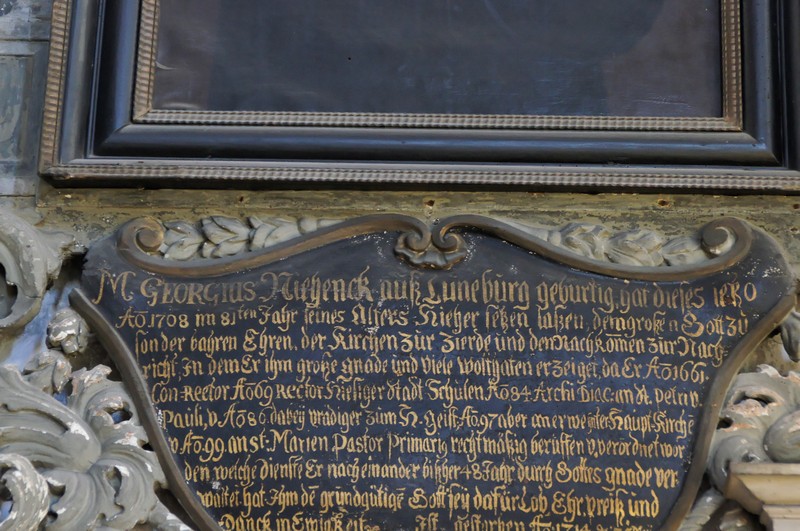 M GEORGIUS Niehenck auß Lüneburg gebürtig, hat dieses ietzo
Aō. 1708 im 81ten Jahr seines Alters hieher setzen laßen, dem großen Gott zu
sonderbahren Ehren, der Kirchen zur Zierde und den Nachkomen zur Nach-
richt, in dem Er ihm große gnade und viele wolthaten erzeiget, da Er Aō 1661
Con-Rector Aō 69 Rector hiesiger Stadt Schulen Aō 84 Archi Diac: an St. Petri v.
Pauli, v Aō 86 dabey prädiger zum H. Geist Aō 97 aber an erwehnter Haupt-Kirche
v Aō 99. an st. Marien Pastor Primarig rechtmäßig beruffen v. verordnet wor
den welche dienste Er nach einander bißher 48 Jahr durch Gottes gnade ver
waltet hat. Ihm dem grundgütigen Gott sey dafür Lob, Ehr, preiß und
Danck in Ewigkeit Ist gestorben Aō 1714